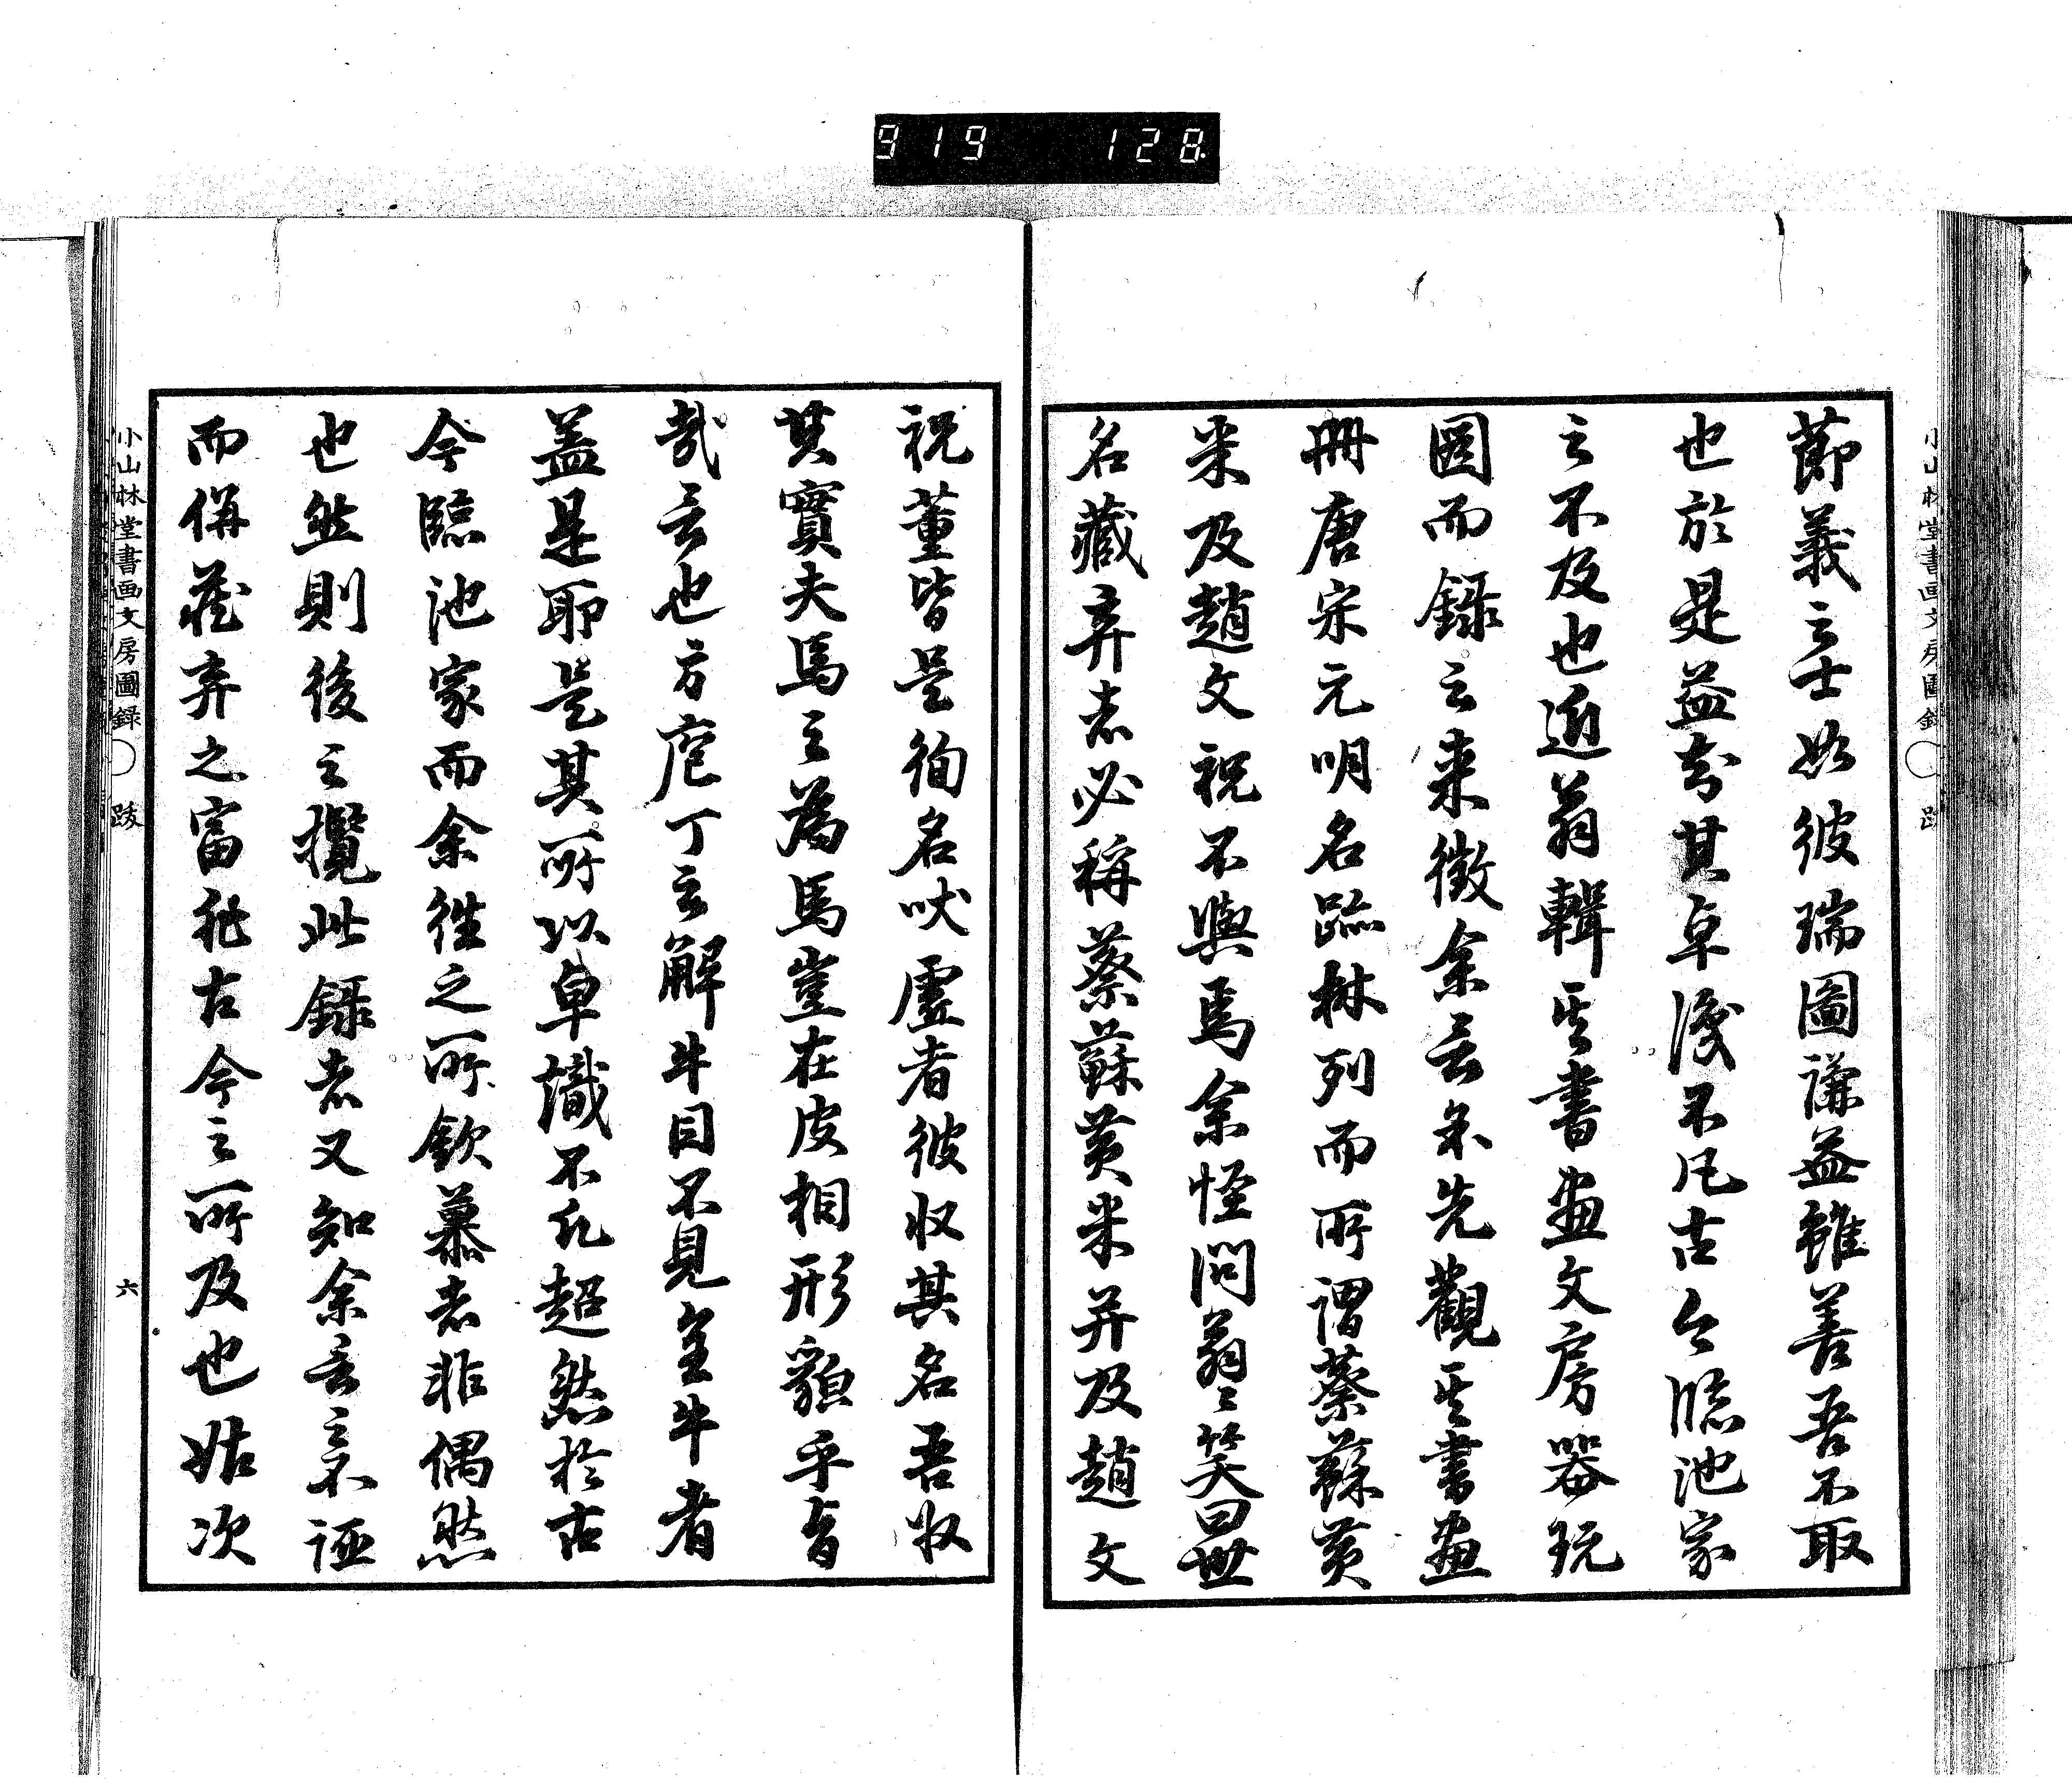 919 128
節義之士如彼瑞圖謙益雖善吾不取
也於是益知其卓識不凡古今臨池家
之不及也近翁輯其書畫文房器玩
圖而錄之来徴余言余先觀其書畫
冊唐宋元明名蹟林列而所謂蔡蘇黄
米及趙文祝不與焉余怪問翁翁笑曰世
名藏弆者必稱蔡蘇黄米并及趙文
祝董皆是徇名吠虚者彼収其名吾収
其實夫馬之為馬豈在皮相形貌乎旨
哉言也方庖丁之解牛目不見全牛者
盖是耶是其所以卓識不凡超然於古
今臨池家而余徃之所欽慕者非偶然
也然則後之攬此錄者又知余言之不誣
而併藏弆之富非古今之所及也姑次
小山林堂書画文房圖録〇 跋 六